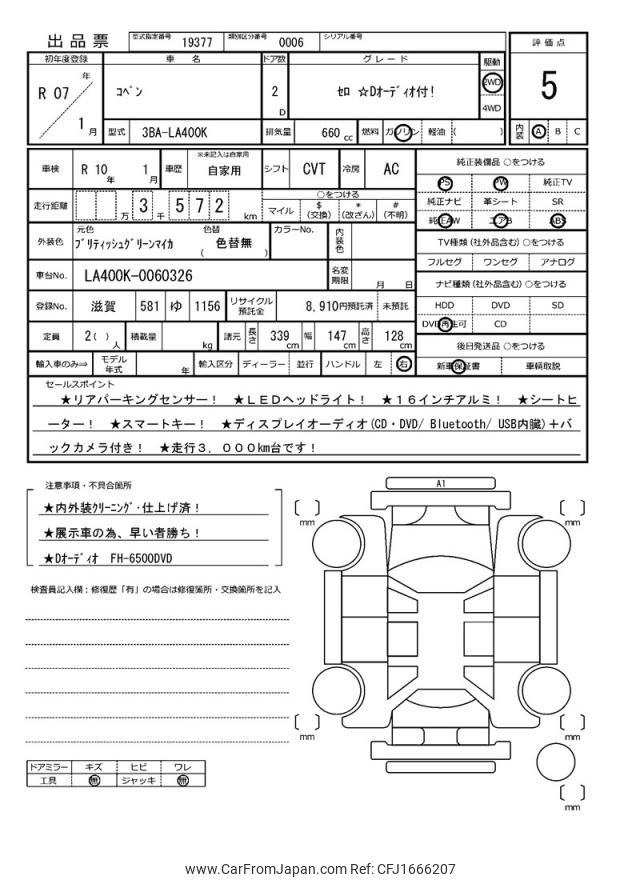 出品票
型式指定番号 19377 類別区分番号 0006 シリアル番号
初年度登録 車名 ドア数 グレード 駆動 評価点
R 07年 1月
コペン 2D セロ ☆Dオーディオ付! 2WD 4WD 5
型式 3BA-LA400K 排気量 660cc 燃料 ガソリン 軽油 ( )
内装 A B C
車検 R 10年 1月 車歴 ※未記入は自家用 自家用 シフト CVT 冷房 AC
走行距離 万 3千 5 7 2 km
○をつける
マイル $(交換) *(改ざん) #(不明)
外装色 元色 ブリティッシュグリーンマイカ 色替 ( 色替無 ) カラーNo. 内装色
車台No. LA400K-0060326 名変期限 月 日
登録No. 滋賀 581 ゆ 1156 リサイクル預託金 8,910円預託済 未預託
定員 2( )人 積載量 kg 諸元 長さ 339cm 幅 147cm 高さ 128cm
輸入車のみ⇒ モデル年式 年 輸入区分 ディーラー 並行 ハンドル 左 右
純正装備品 ○をつける
PS PW 純正TV
純正ナビ 革シート SR
純正AW エアB ABS
TV種類(社外品含む)○をつける
フルセグ ワンセグ アナログ
ナビ種類(社外品含む)○をつける
HDD DVD SD
DVD再生可 CD
後日発送品 ○をつける
新車保証書 車輌取説
セールスポイント
★リアパーキングセンサー! ★LEDヘッドライト! ★16インチアルミ! ★シートヒ
ーター! ★スマートキー! ★ディスプレイオーディオ(CD・DVD/ Bluetooth/ USB内臓)+バ
ックカメラ付き! ★走行3,000km台です!
注意事項・不具合箇所
★内外装クリーニング・仕上げ済!
★展示車の為、早い者勝ち!
★Dオーディオ FH-6500DVD
検査員記入欄:修復歴「有」の場合は修復箇所・交換箇所を記入
A1
[ ] mm
[ ] mm
[ ] mm
[ ] mm
[ ] mm
ドアミラー キズ ヒビ ワレ
工具 無 ジャッキ 無
www.CarFromJapan.com Ref: CFJ1666207